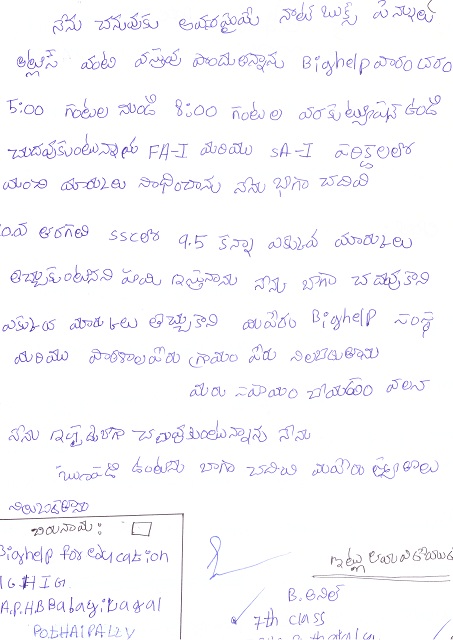 నేను చదువుకు అవసరమైన నోట్ బుక్స్ పెన్నులు
అట్లాస్ వంటి వస్తువు పొందుతున్నాను Bighelp వారం
5:00 గంటల నుండి 8:00 గంటల వరకు ట్యూషన్ ఉండి
చదువుకుంటున్నాను FA-I మరియు SA-I పరీక్షలలో
మంచి మార్కులు సాధించాను నేను బాగా చదివి
10వ తరగతి SSCలో 9.5 కన్నా ఎక్కువ మార్కులు
తెచ్చుకుంటానని హామి ఇస్తున్నాను నేను బాగా చదువుకొని
ఎక్కువ మార్కులు తెచ్చుకొని Bighelp సంస్థ
మరియు పాఠశాల పేరు గ్రామం పేరు నిలబెడుతాను
మీరు సహాయం చేయడం వలన
నేను ఇప్పుడు బాగా చదువుతుంటున్నాను నేను
ఉంటాను బాగా చదివి
నిలబెడతాను
చిరునామా:
Bighelp for education
HIG
A.P.H.B Babagi
POTHAIPALLY
ఇట్లు
B. అనిల్
7th class